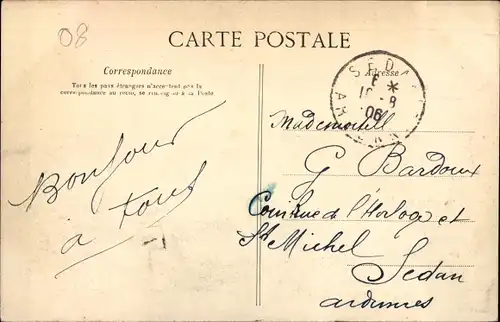 08
CARTE POSTALE
Correspondance
Tous les pays étrangers n'acceptent pas la
correspondance au recto, se renseigner à la Poste
Adresse
SEDAN
10 - 8
06
AR
Bonjour
à tous
Mademoisell
G Bardoux
Coin Rue de l'Horloge et
St Michel
Sedan
ardennes